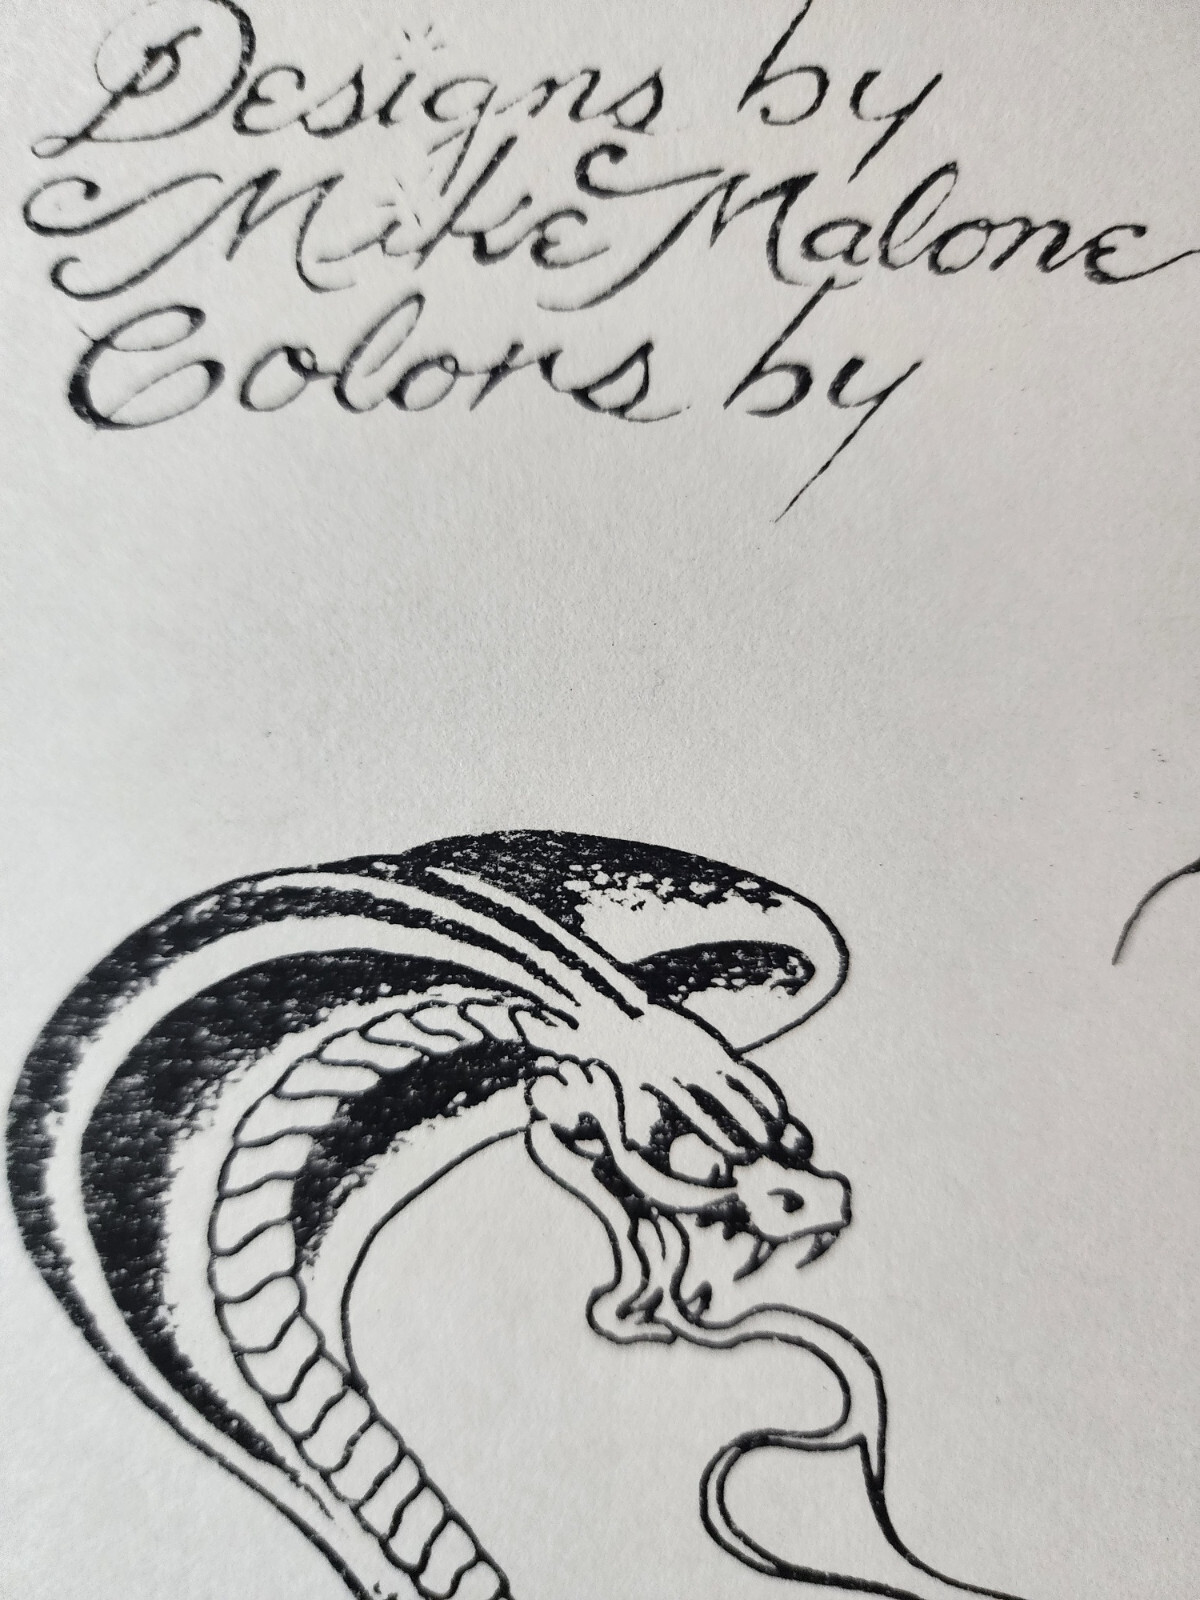 Designs by
Mike Malone
Colors by